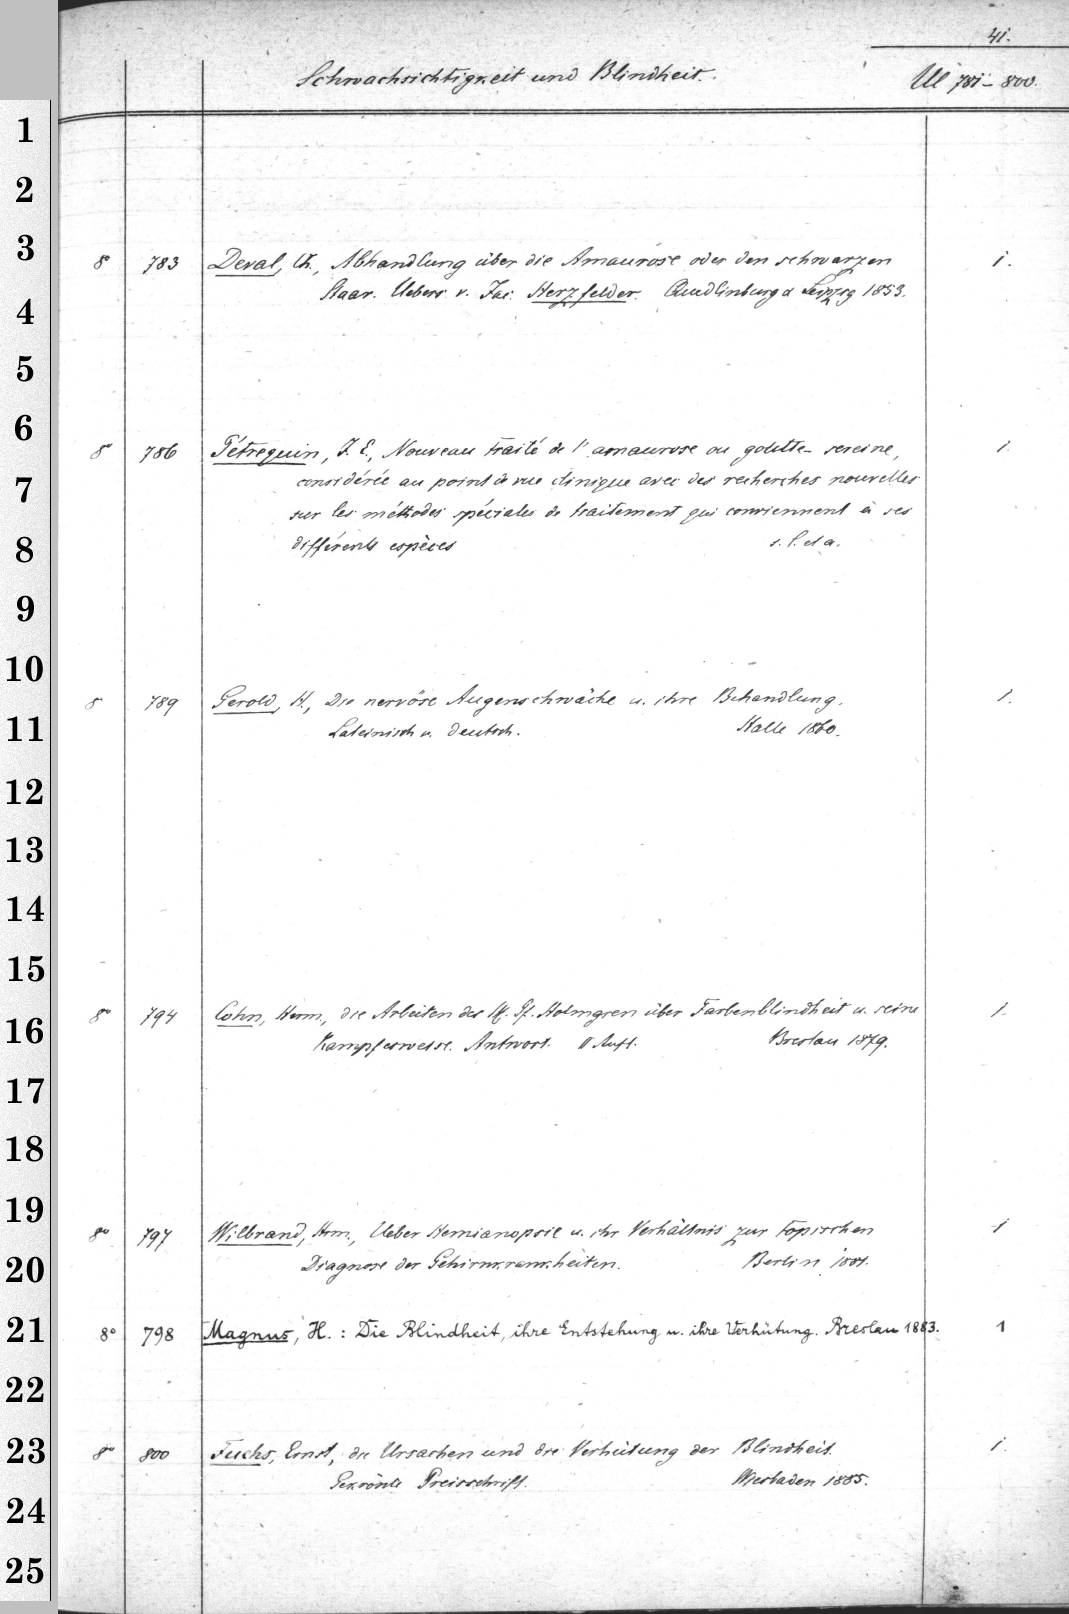 41.
Schwachsichtigkeit und Blindheit.
Ul 781-800.
1
2
3
4
5
6
7
8
9
10
11
12
13
14
15
16
17
18
19
20
21
22
23
24
25
8° 783 Deval, Ch., Abhandlung über die Amaurose oder den schwarzen 1.
Staar. Uebers. v. Jac. Herzfelder. Quedlinburg u Leipzig 1853.
8° 786 Pétrequin, J. E., Nouveau traité de l'amaurose ou goutte-sereine, 1.
considérée au point de vue clinique avec des recherches nouvelles
sur les méthodes spéciales de traitement qui conviennent à ses
différents espèces s. l. et a.
8 789 Gerold, H., Die nervöse Augenschwäche u. ihre Behandlung. 1.
Lateinisch u. deutsch. Halle 1860.
8° 794 Cohn, Herm., die Arbeiten des Hr. Pf. Holmgren über Farbenblindheit u. seine 1.
Kampfesweise. Antwort. II Aufl. Breslau 1879.
8° 797 Wilbrand, Hrm., Ueber Hemianopsie u. ihr Verhältnis zur topischen 1
Diagnose der Gehirnkrankheiten. Berlin 1881.
8° 798 Magnus, H.: Die Blindheit, ihre Entstehung u. ihre Verhütung. Breslau 1883. 1
8° 800 Fuchs, Ernst, die Ursachen und die Verhütung der Blindheit. 1.
Gekrönte Preisschrift. Wiesbaden 1885.